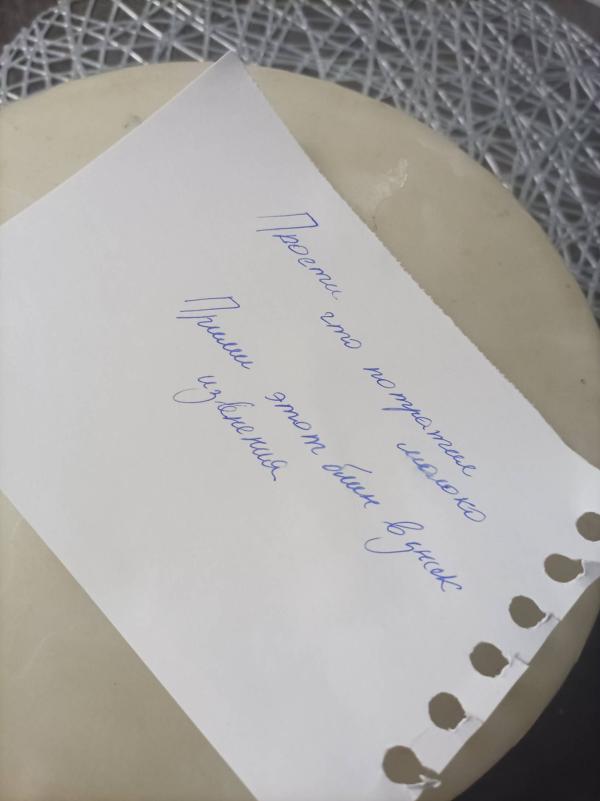 Прости что потратил
молоко
Прими этот блин в знак
извенения